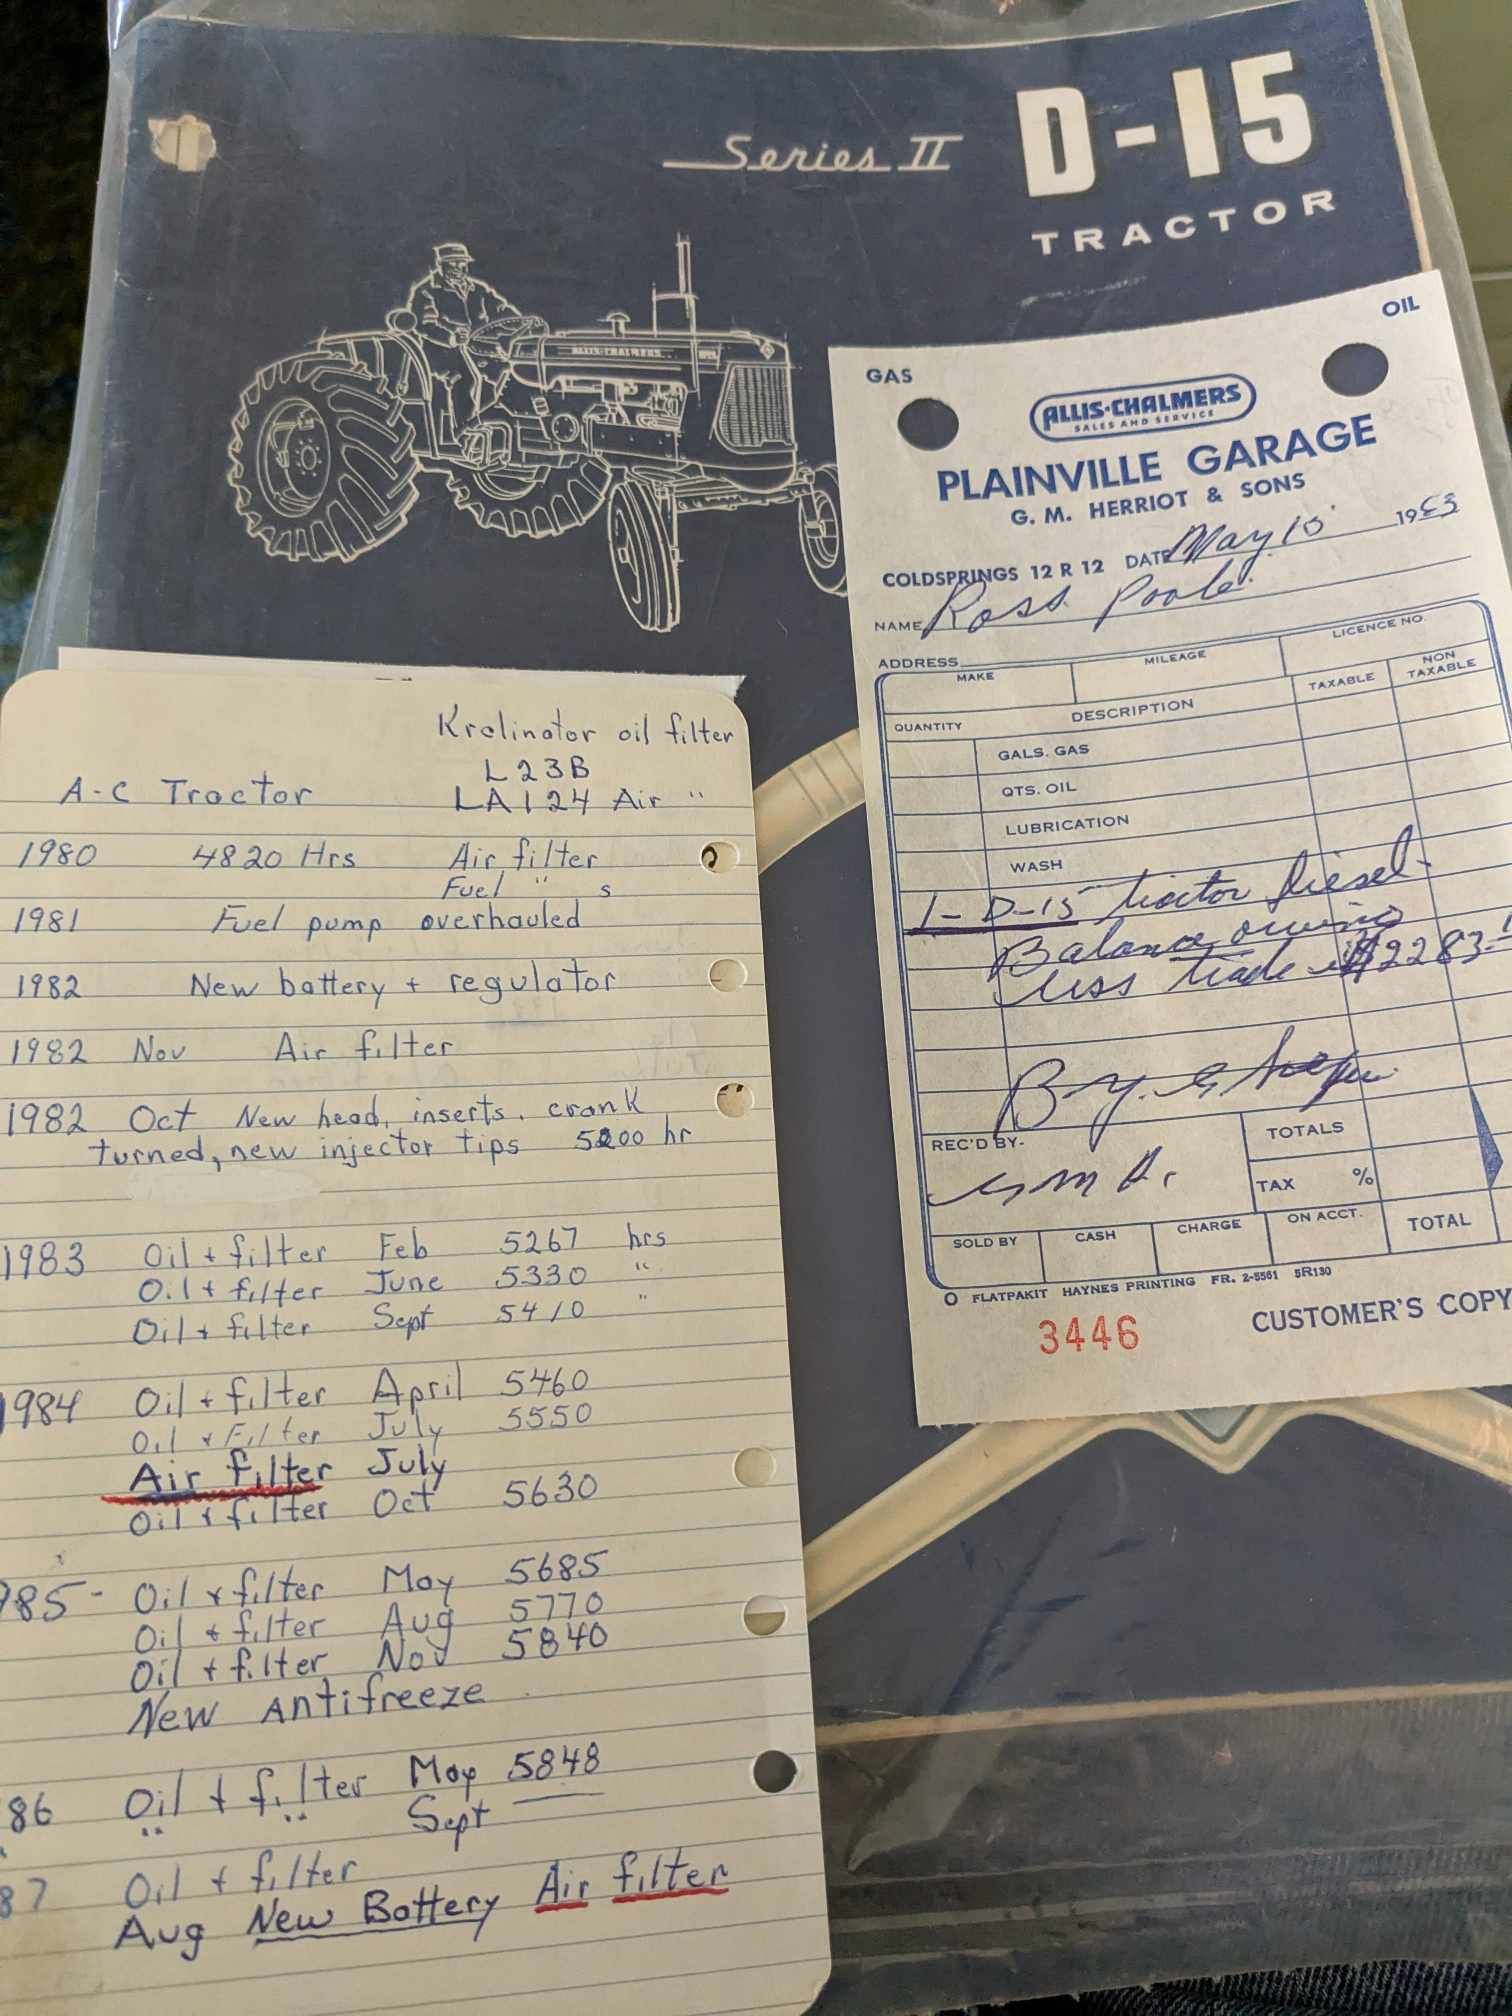 Series II D-15
TRACTOR
ALLIS-CHALMERS
GAS
OIL
ALLIS-CHALMERS
SALES AND SERVICE
PLAINVILLE GARAGE
G. M. HERRIOT & SONS
COLDSPRINGS 12 R 12 DATE May 15 1963
NAME Ross Poole
ADDRESS
MAKE MILEAGE LICENCE NO.
QUANTITY DESCRIPTION TAXABLE NON TAXABLE
GALS. GAS
QTS. OIL
LUBRICATION
WASH
1-D-15 tractor Diesel
Balance owing
less trade in $2283.
By.
REC'D BY-
TOTALS
G M H.
TAX %
SOLD BY CASH CHARGE ON ACCT. TOTAL
FLATPAKIT HAYNES PRINTING FR. 2-5561 5R130
3446 CUSTOMER'S COPY
Kralinator oil filter
L23B
A-C Tractor LA124 Air "
1980 4820 Hrs Air filter
Fuel " s
1981 Fuel pump overhauled
1982 New battery + regulator
1982 Nov Air filter
1982 Oct New head, inserts. crank
turned, new injector tips 5200 hr
1983 Oil + filter Feb 5267 hrs
Oil + filter June 5330 "
Oil + filter Sept 5410 "
1984 Oil + filter April 5460
Oil + Filter July 5550
Air filter July
Oil + filter Oct 5630
985- Oil + filter May 5685
Oil + filter Aug 5770
Oil + filter Nov 5840
New Antifreeze
86 Oil + filter May 5848
" " Sept
87 Oil + filter
Aug New Battery Air filter